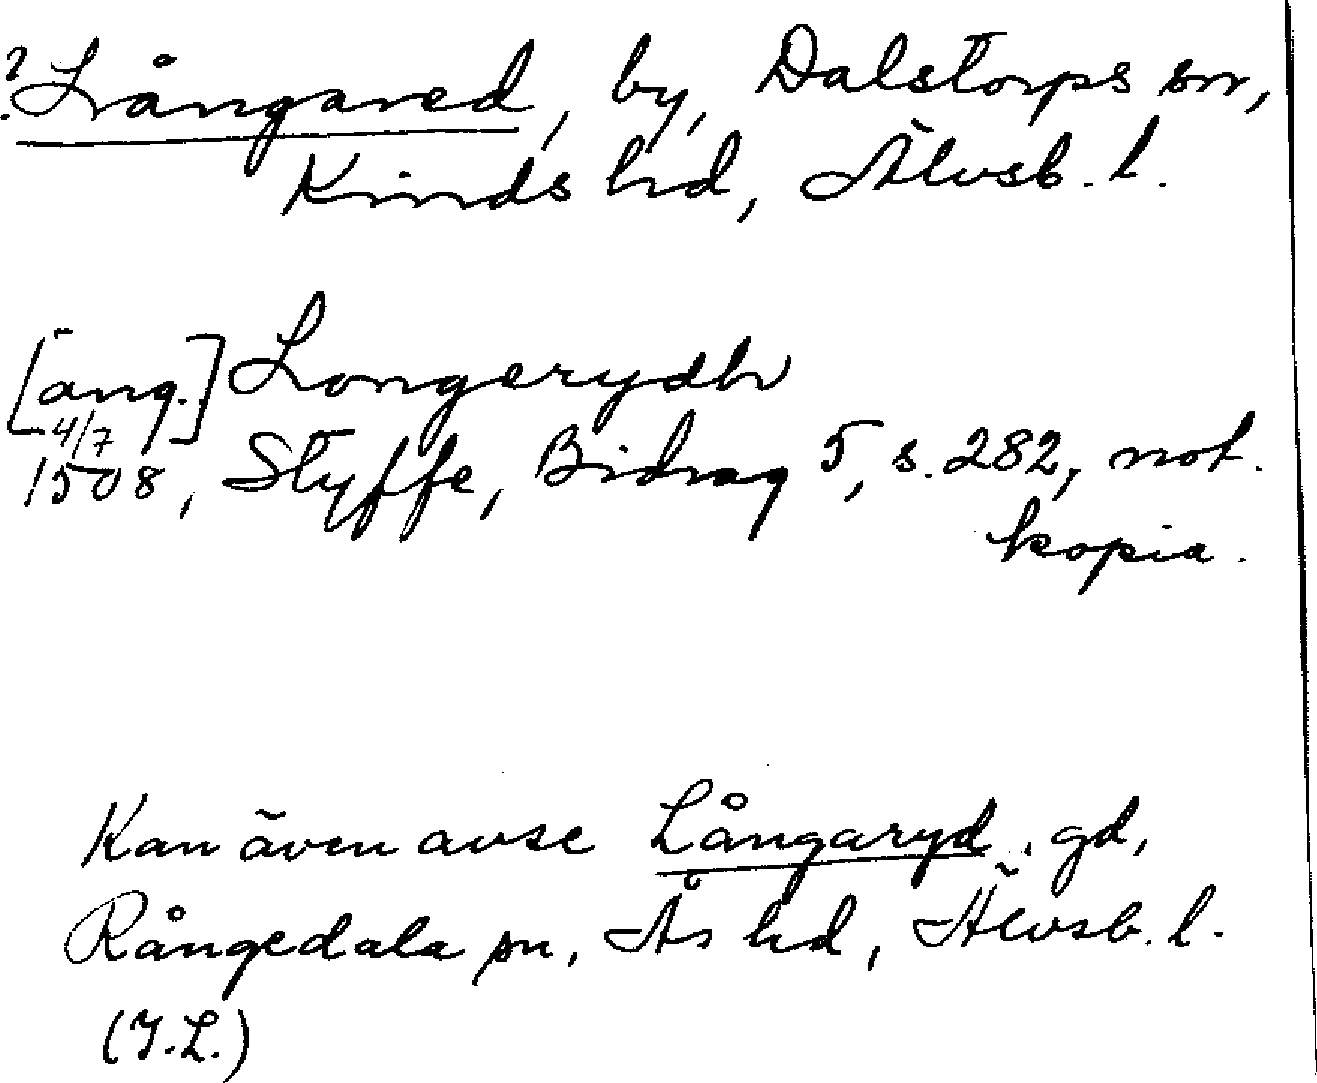 ? Långared, by, Dalstorps sn,
Kinds hd, Älvsb. l.
[äng.] Longerydh
4/7
1508, Styffe, Bidrag 5, s. 282, not.
kopia.
Kan även avse Långaryd, gd,
Rångedala sn, Ås hd, Älvsb. l.
(I.L.)